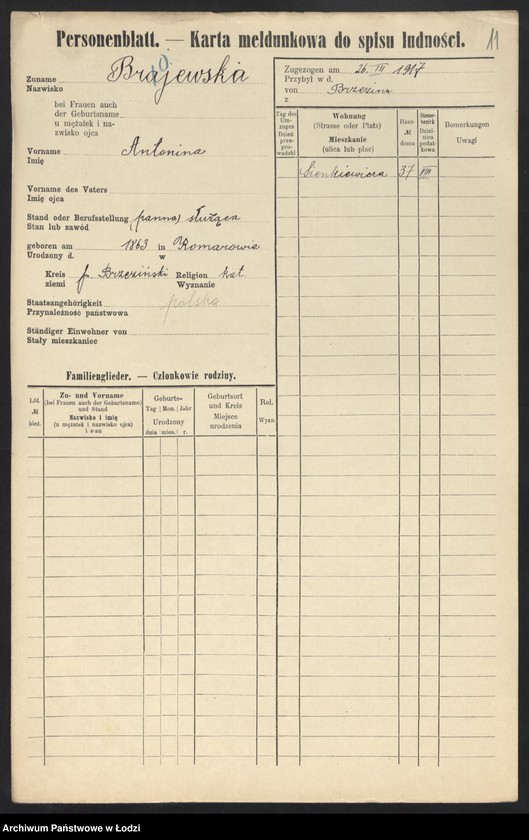 Personenblatt. — Karta meldunkowa do spisu ludności.
11
Zuname Brajewska
Nazwisko
bei Frauen auch
der Geburtsname
u mężatek i na-
zwisko ojca
Vorname Antonina
Imię
Vorname des Vaters
Imię ojca
Stand oder Berufsstellung (panna) służąca
Stan lub zawód
geboren am 1863 in Komarowie
Urodzony d. w
Kreis p. Brzeziński Religion kat.
ziemi Wyznanie
Staatsangehörigkeit polska
Przynależność państwowa
Ständiger Einwohner von
Stały mieszkaniec
Zugezogen am 26. III 1917
Przybył w d.
von Brzezina
z
Tag des Um-zuges Dzień prze-pro-wadzki
Wohnung (Strasse oder Platz) Mieszkanie (ulica lub plac)
Haus-№ domu
Steuer-bezirk Dziel-nica podat-kowa
Bemerkungen Uwagi
Sienkiewicza 37 VIII
Familienglieder. — Członkowie rodziny.
Lfd. № bież.
Zu- und Vorname (bei Frauen auch der Geburtsname) und Stand Nazwisko i imię (u mężatek i nazwisko ojca) i stan
Geburts- Tag Mon. Jahr Urodzony dnia mies. r.
Geburtsort und Kreis Miejsce urodzenia
Rel. Wyzn.
Archiwum Państwowe w Łodzi